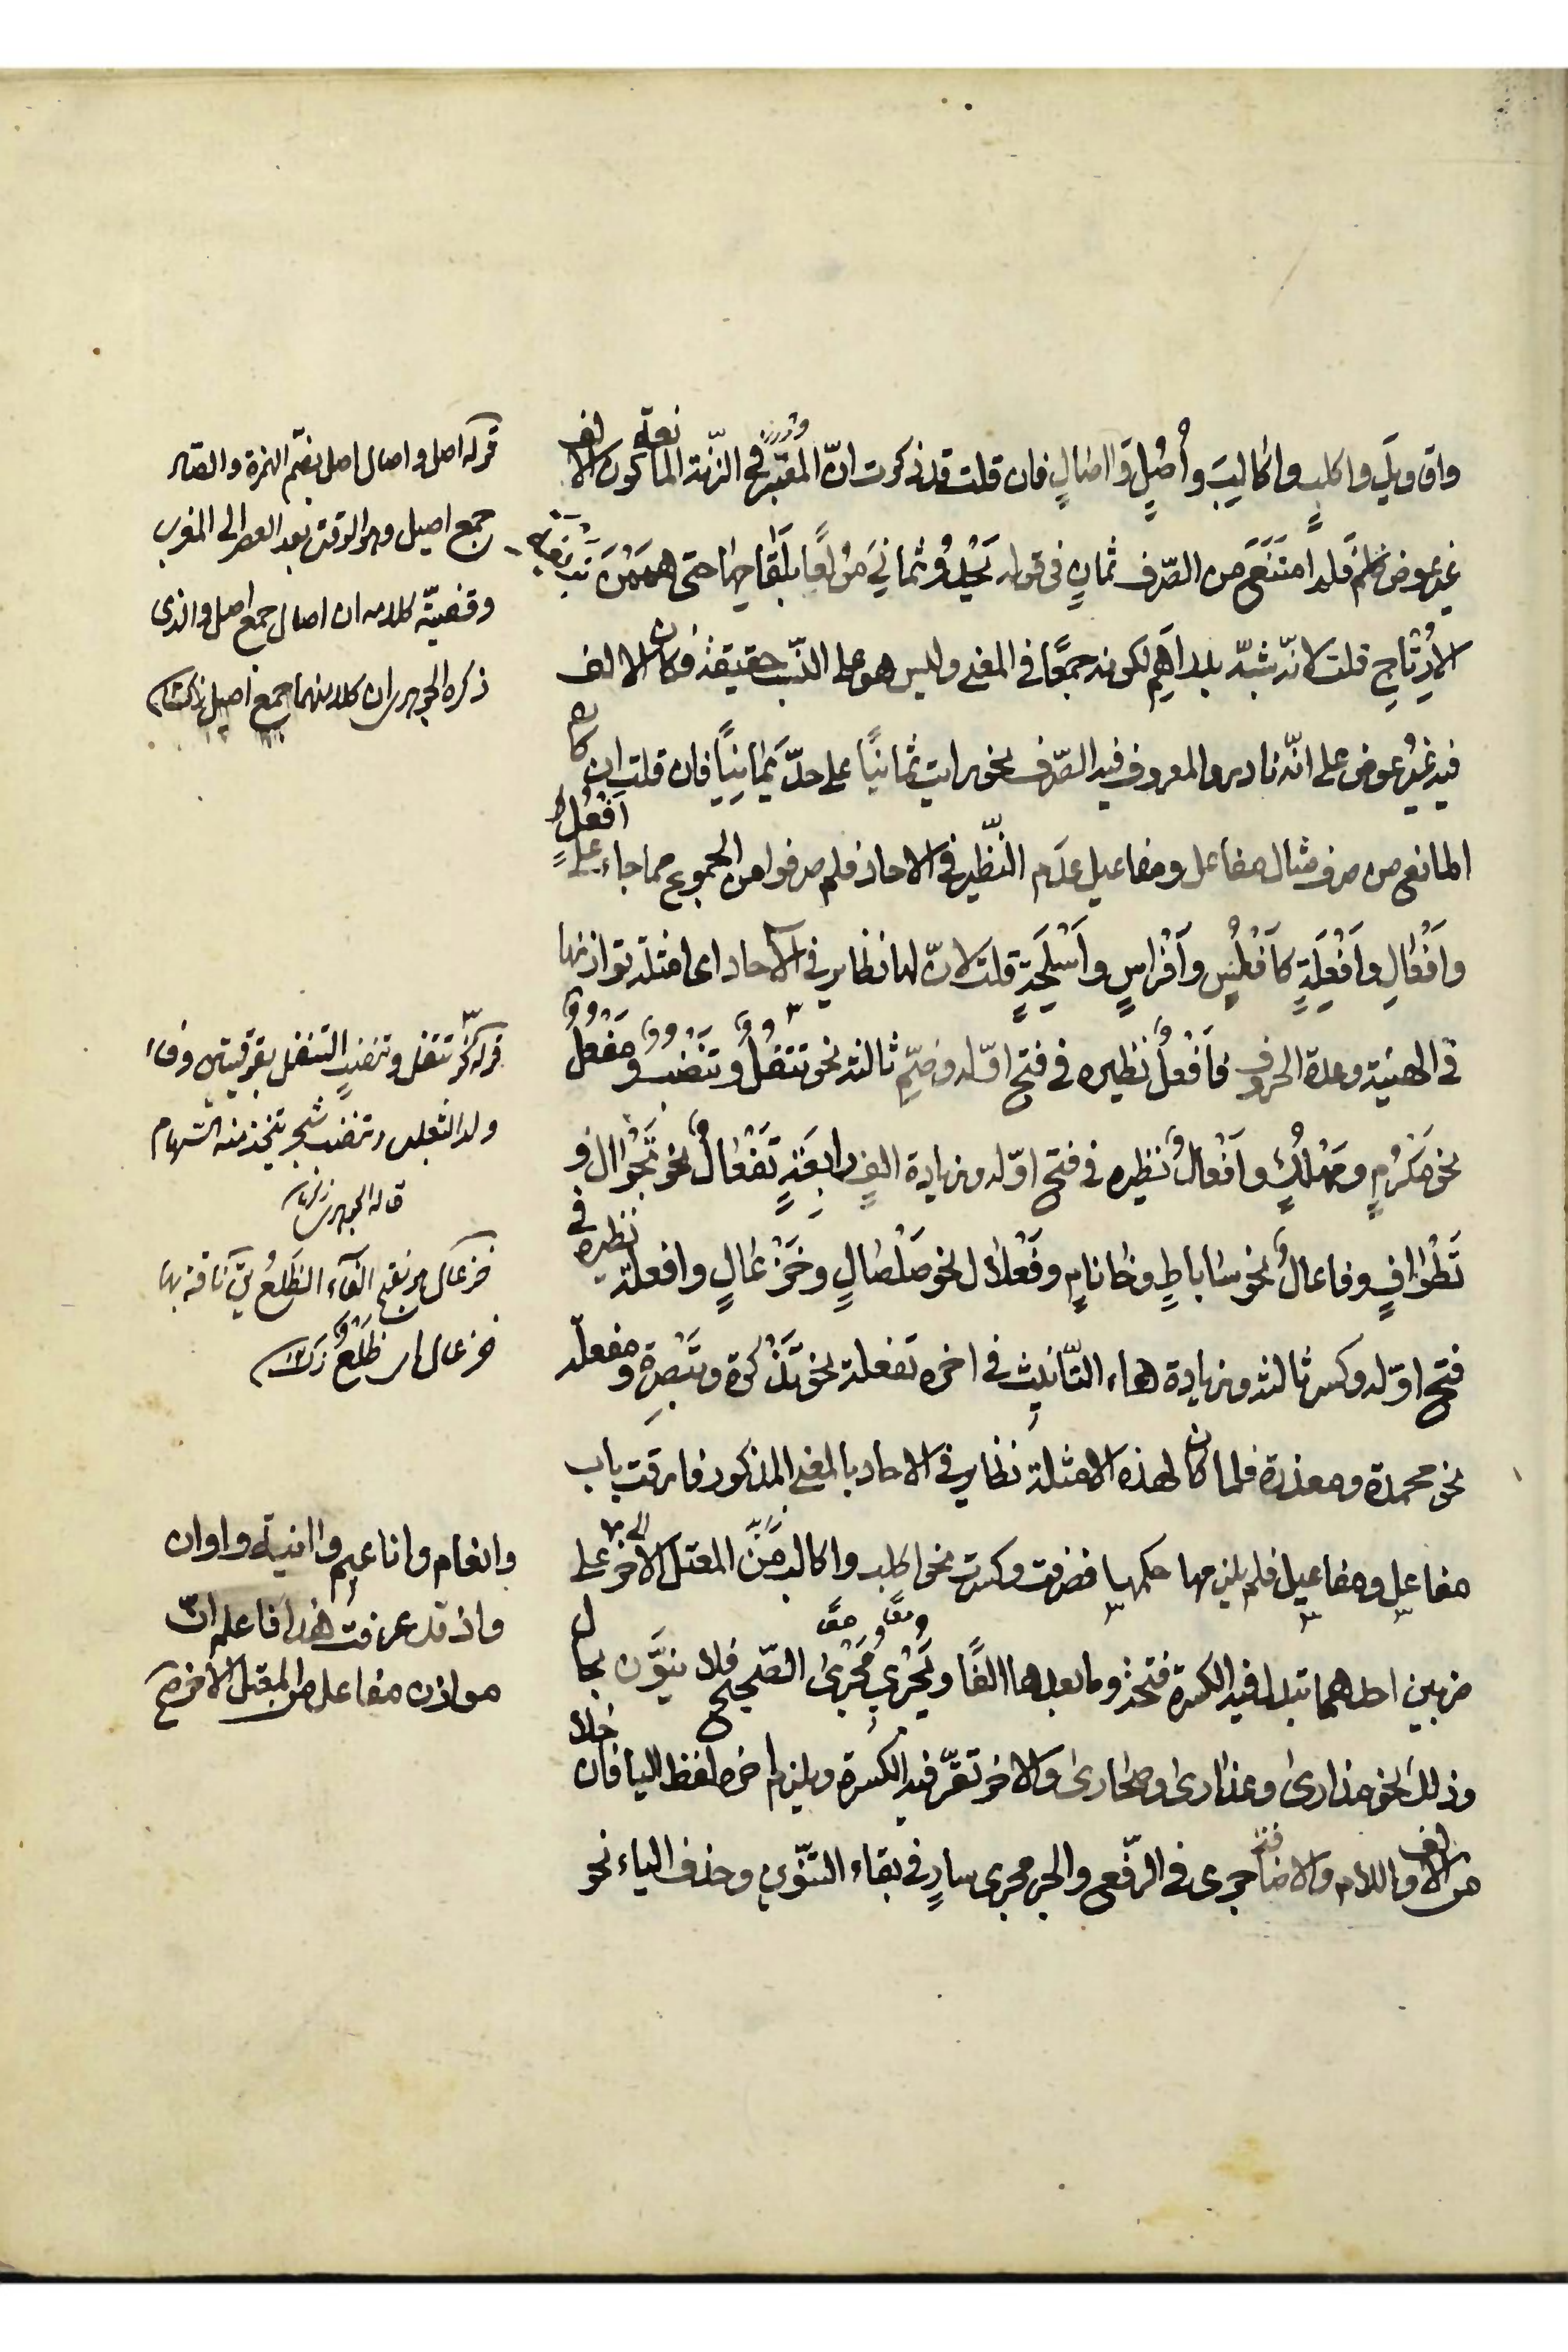 واقاويل واكلب واكاليب وأصل وآاصال فان قلت قد ذكرت ان المعتبر في الزنة المانعة كون الالف
غير عوض فلم امتنع من الصرف ثمان في قوله يحدو ثماني مولعا بلقاحها حتى هممن
الارتاج قلت لانه شبه بدراهم لكونه جمعا في المعنى وليس هو على النسب حقيقة فكان الالف
فيه غير عوض على انه نادر والمعروف فيه الصرف نحو رايت ثمانيا على حد يمانيا فان قلت ان كان
المانع من صرف مثال مفاعل ومفاعيل عدم النظير في الاحاد فلم صرفوا من الجموع مما جاء على أفعل
وأفعال وأفعلة كأفلس وأفراس وأسلحة قلت لان لها نظاير في الآحاد اى امثلة توازنها
في الهيئة وعدة الحروف فأفعل نظيره في فتح اوله وضم ثالثه نحو تتفل وتنضب ومفعل
نحو مكرم ومهلك وأفعال نظيره في فتح اوله وزيادة الف رابعة تفعال نحو تجوال و
تطواف وفاعال نحو ساباط وخاتام وفعلال نحو صلصال وخزعال وافعلة نظيره في
فتح اوله وكسر ثالثه وزيادة هاء التانيث في اخره تفعلة نحو تذكرة وتبصرة ومفعلة
نحو محمدة ومعذرة فلما كان لهذه الامثلة نظاير في الاحاد بالمعنى المذكور فارقت باب
مفاعل ومفاعيل فلم يلزمها حكمهما فصرفت وكسرت نحو اكلب واكالب المعتل الآخر على
ضربين احدهما تبدل فيه الكسرة فتحة وما بعدها الفا ويجرى مجرى الصحيح فلا ينون بحال
وذلك نحو مدارى وعذارى وصحارى والاخر تقر فيه الكسرة ويلزم اخره لفظ اليا فان خلا
من الالف واللام والاضافة جرى في الرفع والجر مجرى سار في بقاء التنوين وحذف الياء نحو
قوله اصل واصال اصل بضم الهمزة والصاد
جمع اصيل وهو الوقت بعد العصر الى المغرب
وقضية كلامه ان اصال جمع اصل والذى
ذكره الجوهرى ان كلا منهما جمع اصيل زكريا
قوله نحو تتفل وتنضب التتفل بفوقيتين وفاء
ولد الثعلب وتنضب شجر يتخذ منه السهام
قاله الجوهرى زكريا
خزعال هو بفتح الخاء الظلع يق ناقة بها
خزعال اى ظلع زكريا
وانعام واناعيم وآانية واوان
واذ قد عرفت هذا فاعلم ان
موازن مفاعل من المعتل الآخر صح